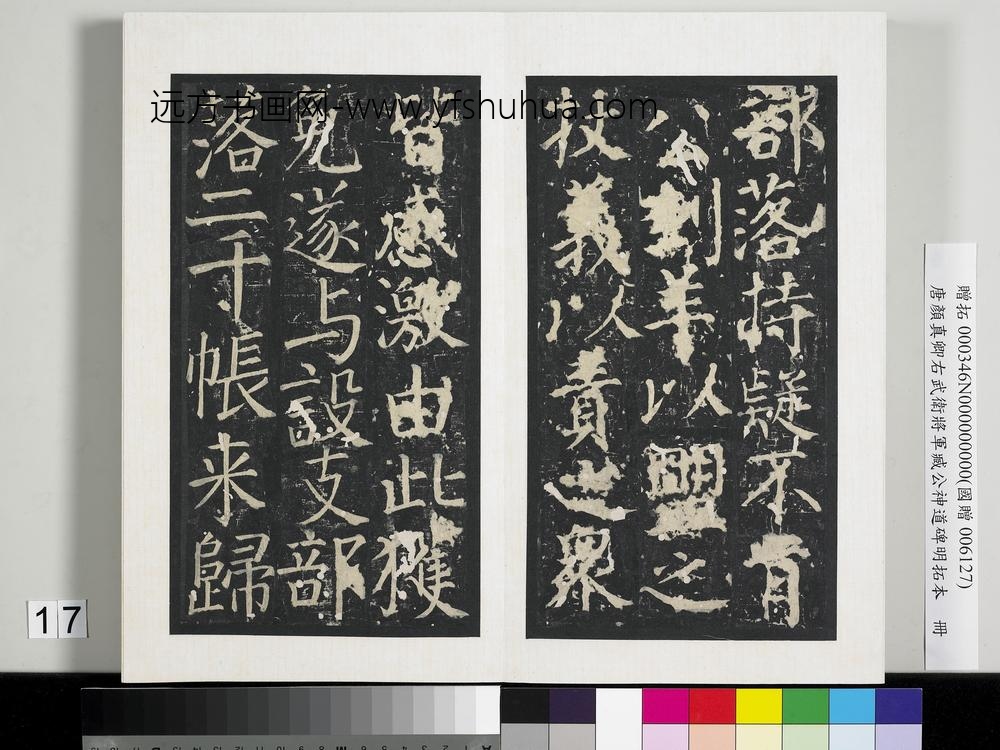 部落持疑不肯
公刲羊以盟之
杖義以責之眾
皆感激由此獲
免遂与設支部
落二千帳来歸
远方书画网-www.yfshuhua.com
贈拓 000346N000000000(國贈 006127)
唐顏真卿右武衛將軍臧公神道碑明拓本 冊
17